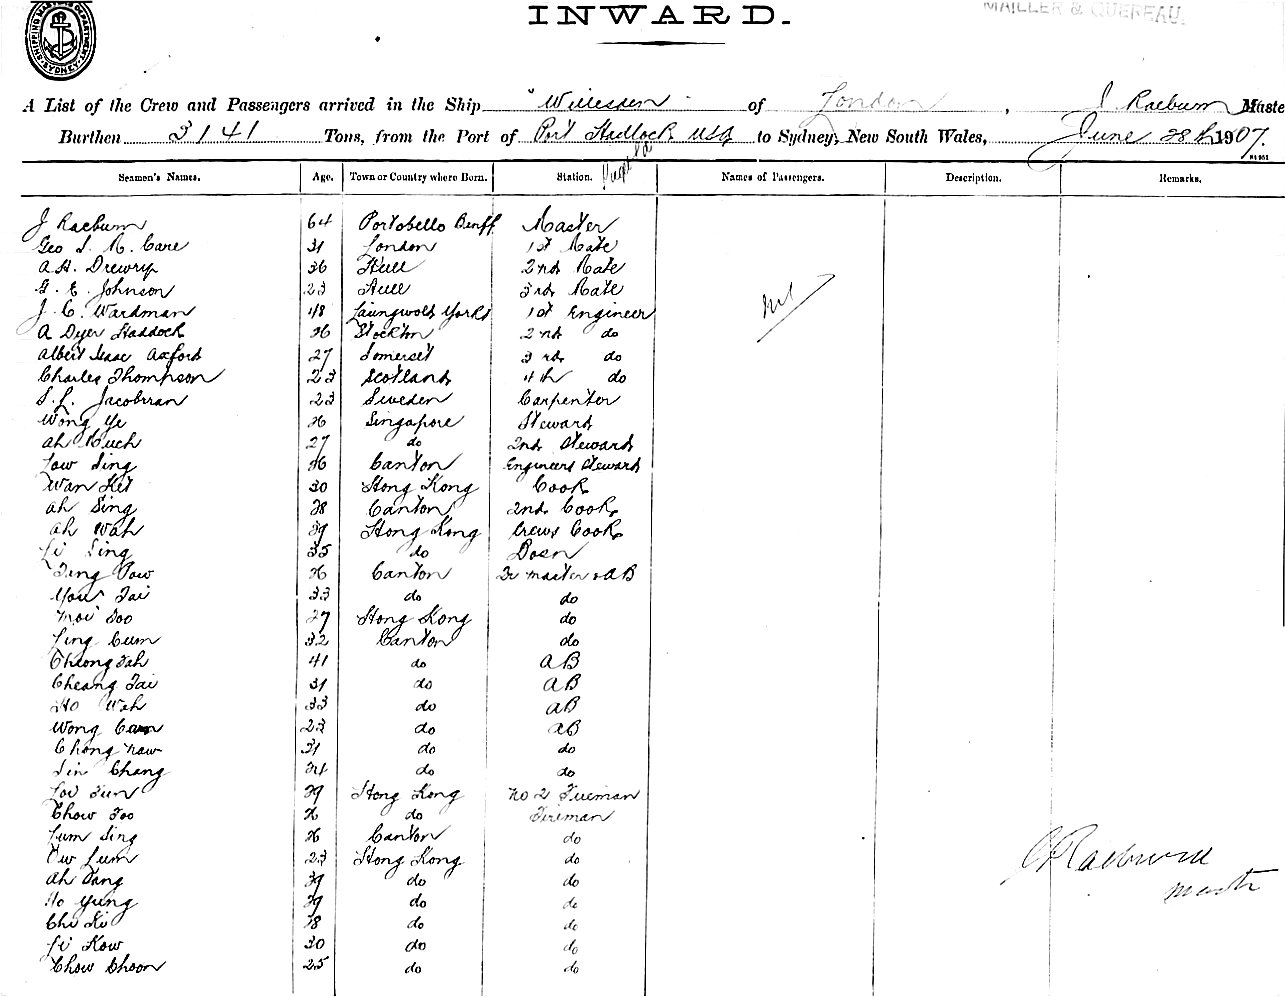 SHIPPING MASTERS DEPARTMENT SYDNEY
INWARD.
MAILLER & QUEREAU.
A List of the Crew and Passengers arrived in the Ship "Willesden" of London, J Raeburn Maste
Burthen 3141 Tons, from the Port of Port Hadlock USA to Sydney, New South Wales, June 28th 1907.
Seamen's Names. Age. Town or Country where Born. Station. Names of Passengers. Description. Remarks.
J Raeburn 64 Portobello Banff Master
Geo S. M. Care 31 London 1st Mate
A.H. Drewry 36 Hull 2nd Mate
G. E. Johnson 23 Hull 3rd Mate
J. C. Wardman 48 Yorks 1st Engineer
A Dyer Haddock 26 Stockton 2nd do
Albert Isaac Axford 27 Somerset 3rd do
Charles Thompson 23 Scotland 4th do
Jacobsson 23 Sweden Carpenter
Wong Ye 26 Singapore Steward
Ah 27 do 2nd Steward
Low Sing 26 Canton Engineers Steward
Wan Kit 30 Hong Kong Cook
Ah Sing 28 Canton 2nd Cook
Ah Wah 29 Hong Kong Crews Cook
Li Sing 35 do Bosn
26 Canton Qr master & AB
You Tai 33 do do
27 Hong Kong do
Ling Cum 32 Canton do
Cheong Tah 41 do AB
Cheang Tai 31 do AB
Ho Wah 33 do AB
Wong Cam 23 do AB
Chong 31 do do
Sin Chang 24 do do
Loo 29 Hong Kong No 2 Fireman
Chow Too 26 do Fireman
Lum Sing 26 Canton do
Ow Lum 23 Hong Kong do
Ah 39 do do
Ho Yung 29 do do
Chi Ki 28 do do
Li Kow 30 do do
Chow Choon 25 do do
Nil
J Raeburn
Master